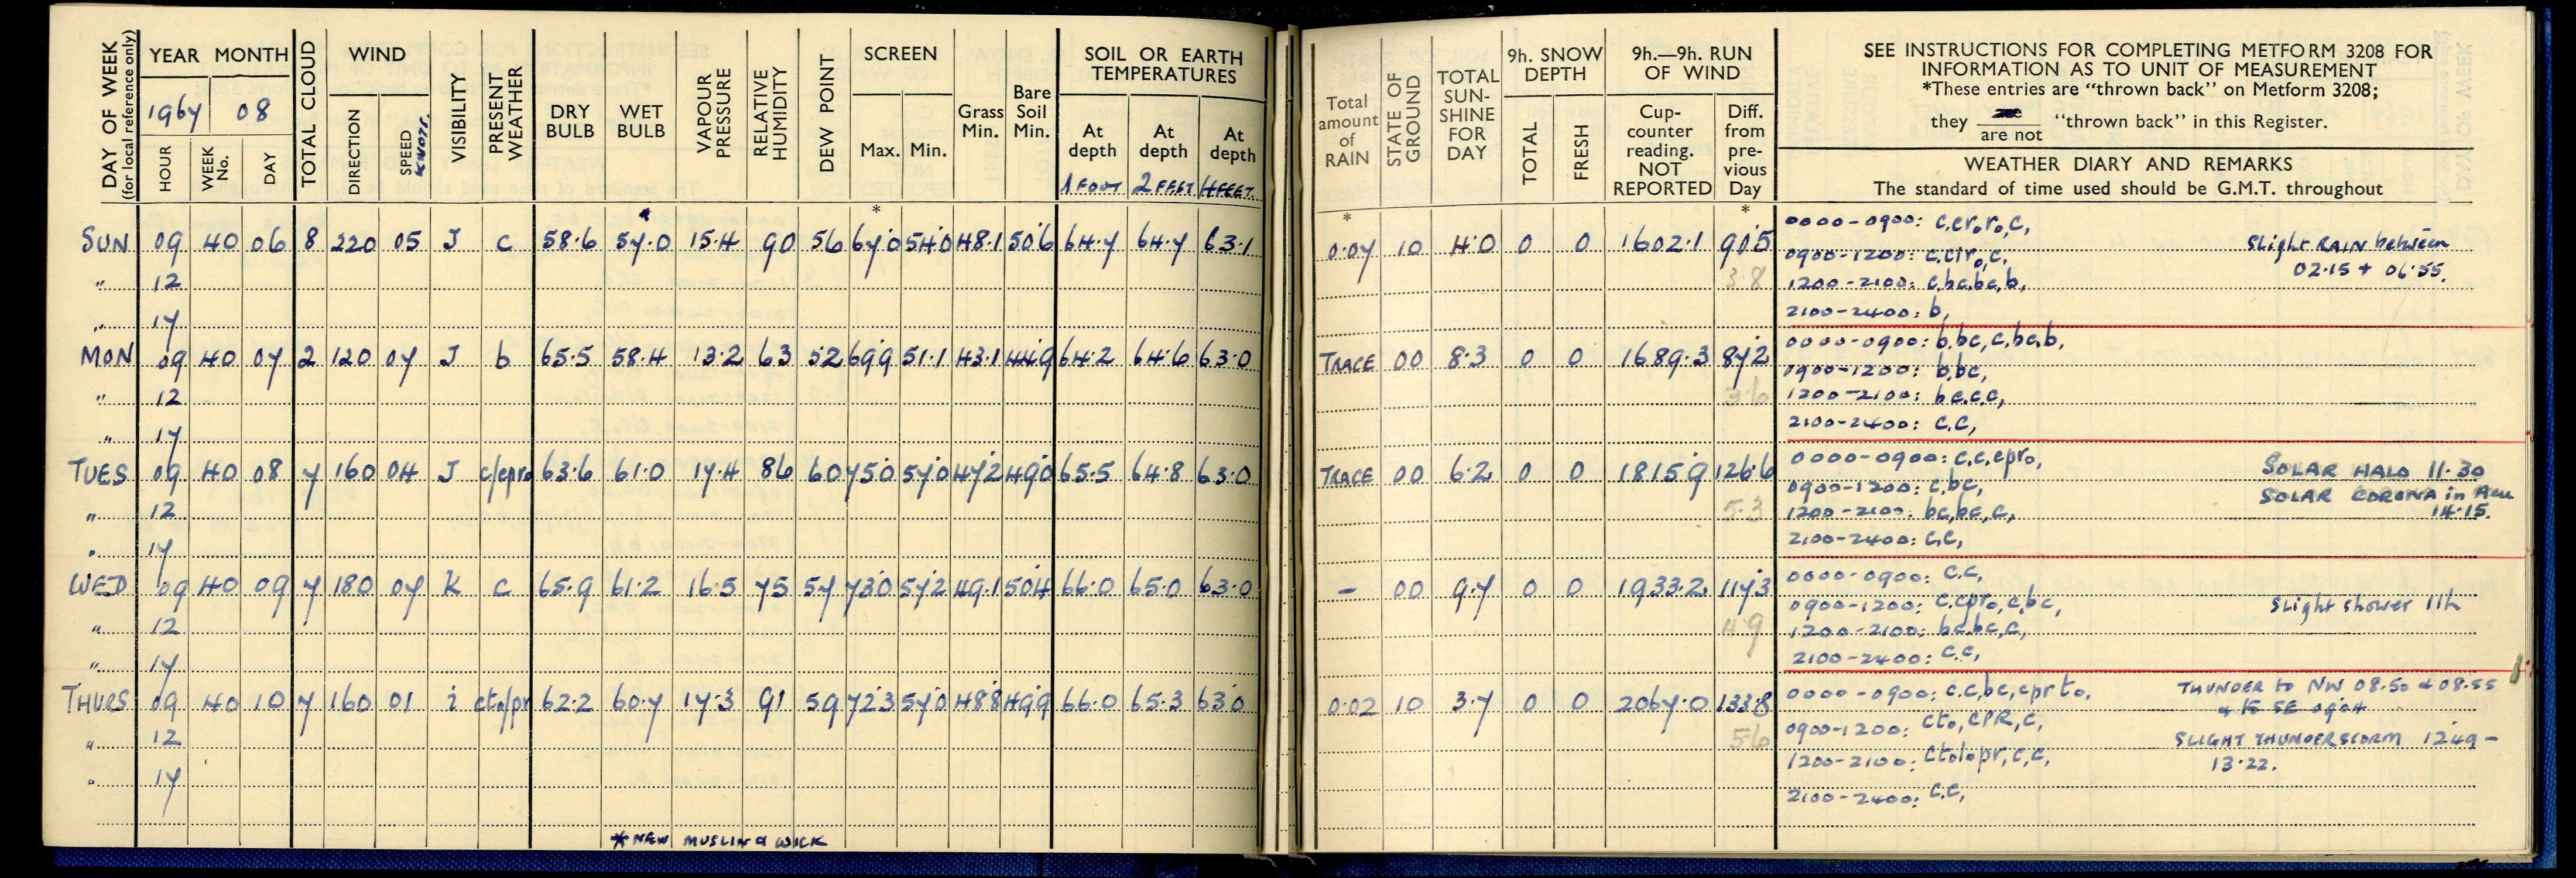 DAY OF WEEK (for local reference only)
YEAR MONTH
1967 08
HOUR WEEK No. DAY
TOTAL CLOUD
WIND
DIRECTION SPEED KNOTS.
VISIBILITY
PRESENT WEATHER
DRY BULB
WET BULB
VAPOUR PRESSURE
RELATIVE HUMIDITY
DEW POINT
SCREEN
Max. Min.
Grass Min.
Bare Soil Min.
SOIL OR EARTH TEMPERATURES
At depth 1 FOOT
At depth 2 FEET
At depth 4 FEET.
SUN 09 40 06 8 220 05 J c 58.6 57.0 15.4 90 56 67.0 54.0 48.1 50.6 64.7 64.7 63.1
" 12
" 17
MON 09 40 07 2 120 07 J b 65.5 58.4 13.2 63 52 69.9 51.1 43.1 44.9 64.2 64.6 63.0
" 12
" 17
TUES 09 40 08 7 160 04 J c/cpro 63.6 61.0 17.4 86 60 75.0 57.0 47.2 49.0 65.5 64.8 63.0
" 12
" 17
WED 09 40 09 7 180 07 K c 65.9 61.2 16.5 75 57 73.0 57.2 49.1 50.4 66.0 65.0 63.0
" 12
" 17
THURS 09 40 10 7 160 01 i cto/pr 62.2 60.7 17.3 91 59 72.3 57.0 48.8 49.9 66.0 65.3 63.0
" 12
" 17
* NEW MUSLIN & WICK
Total amount of RAIN
STATE OF GROUND
TOTAL SUN-SHINE FOR DAY
9h. SNOW DEPTH
TOTAL FRESH
9h.—9h. RUN OF WIND
Cup-counter reading. NOT REPORTED
Diff. from pre-vious Day
SEE INSTRUCTIONS FOR COMPLETING METFORM 3208 FOR
INFORMATION AS TO UNIT OF MEASUREMENT
*These entries are "thrown back" on Metform 3208;
they are / are not "thrown back" in this Register.
WEATHER DIARY AND REMARKS
The standard of time used should be G.M.T. throughout
0.07 10 4.0 0 0 1602.1 90.5
3.8
0000-0900: c,cr.ro,c,
0900-1200: c,ciro,c,
1200-2100: c,bc,bc,b,
2100-2400: b,
Slight RAIN between
02.15 + 06.55.
TRACE 00 8.3 0 0 1689.3 87.2
3.6
0000-0900: b,bc,c,bc,b,
0900-1200: b,bc,
1200-2100: bc,c,c,
2100-2400: c,c,
TRACE 00 6.2 0 0 1815.9 126.6
5.3
0000-0900: c,c,cpro,
0900-1200: c,bc,
1200-2100: bc,bc,c,
2100-2400: c,c,
SOLAR HALO 11.30
SOLAR CORONA in Acu
14.15.
- 00 9.7 0 0 1933.2 117.3
4.9
0000-0900: c.c,
0900-1200: c.cpro,c,bc,
1200-2100: bc,bc,c,
2100-2400: c.c,
Slight shower 11h
0.02 10 3.7 0 0 2067.0 133.8
5.6
0000-0900: c.c,bc,cprto,
0900-1200: cto,cPR,c,
1200-2100: ctolopr,c,c,
2100-2400: c.c,
THUNDER to NW 08.50 & 08.55
& to SE 09.04
SLIGHT THUNDERSTORM 12.49 -
13.22.